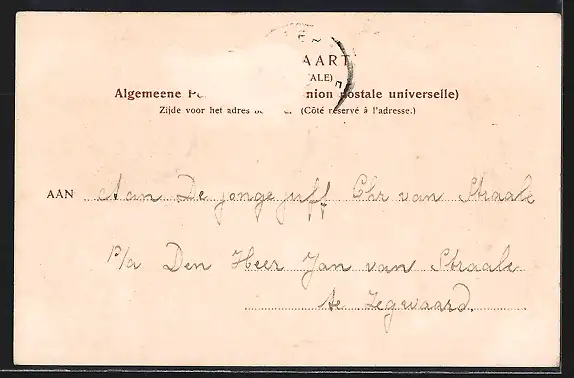 AART
ALE)
Algemeene P nion postale universelle)
Zijde voor het adres (Côté réservé à l'adresse.)
AAN Aan De jonge juff Chr van Straale
P/a Den Heer Jan van Straale
te Zegwaard.